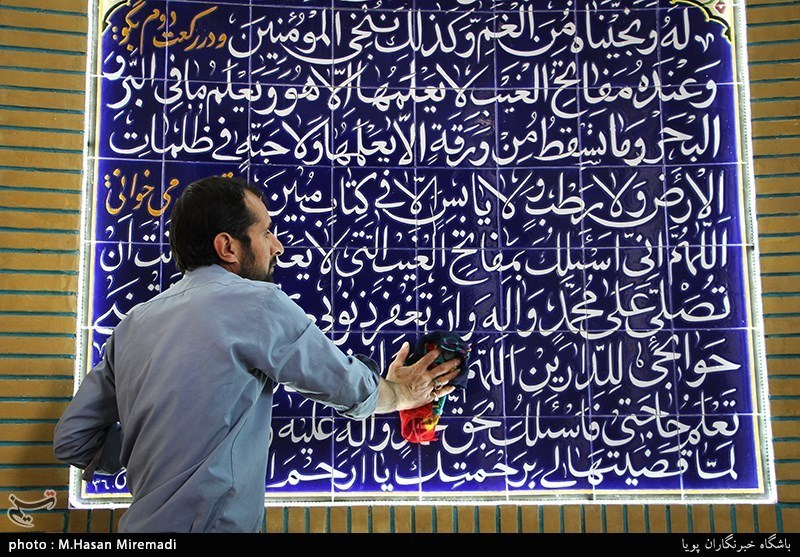 لَهُ وَنَجَّيْناهُ مِنَ الْغَمِّ وَكَذلِكَ نُنْجِي الْمُؤْمِنينَ ودر رکعت دوم بگو:
وَعِنْدَهُ مَفاتِحُ الْغَيْبِ لا يَعْلَمُها اِلاّ هُوَ وَيَعْلَمُ ما فِي الْبَرِّ وَ
الْبَحْرِ وَما تَسْقُطُ مِنْ وَرَقَةٍ اِلاّ يَعْلَمُها وَلا حَبَّةٍ في ظُلُماتِ
الْاَرْضِ وَلا رَطْبٍ وَلا يابِسٍ اِلاّ في كِتابٍ مُبينٍ می خوانی:
اَللّهُمَّ اِنّي اَسْئَلُكَ بِمَفاتِحِ الْغَيْبِ الَّتي لا اَنْ
تُصَلِّيَ عَلى مُحَمَّدٍ وَآلِهِ وَاَنْ تَغْفِرَ ذُنُوبي
حَوائِجي لِلدّارَيْنِ اَللّهُمَّ
تَعْلَمُ حاجَتي فَاَسْئَلُكَ بِحَقِّ وَآلِهِ عَلَيْهِ
لَمّا قَضَيْتَها لي بِرَحْمَتِكَ يا اَرْحَمَ
تسنیم
photo : M.Hasan Miremadi
باشگاه خبرنگاران پویا